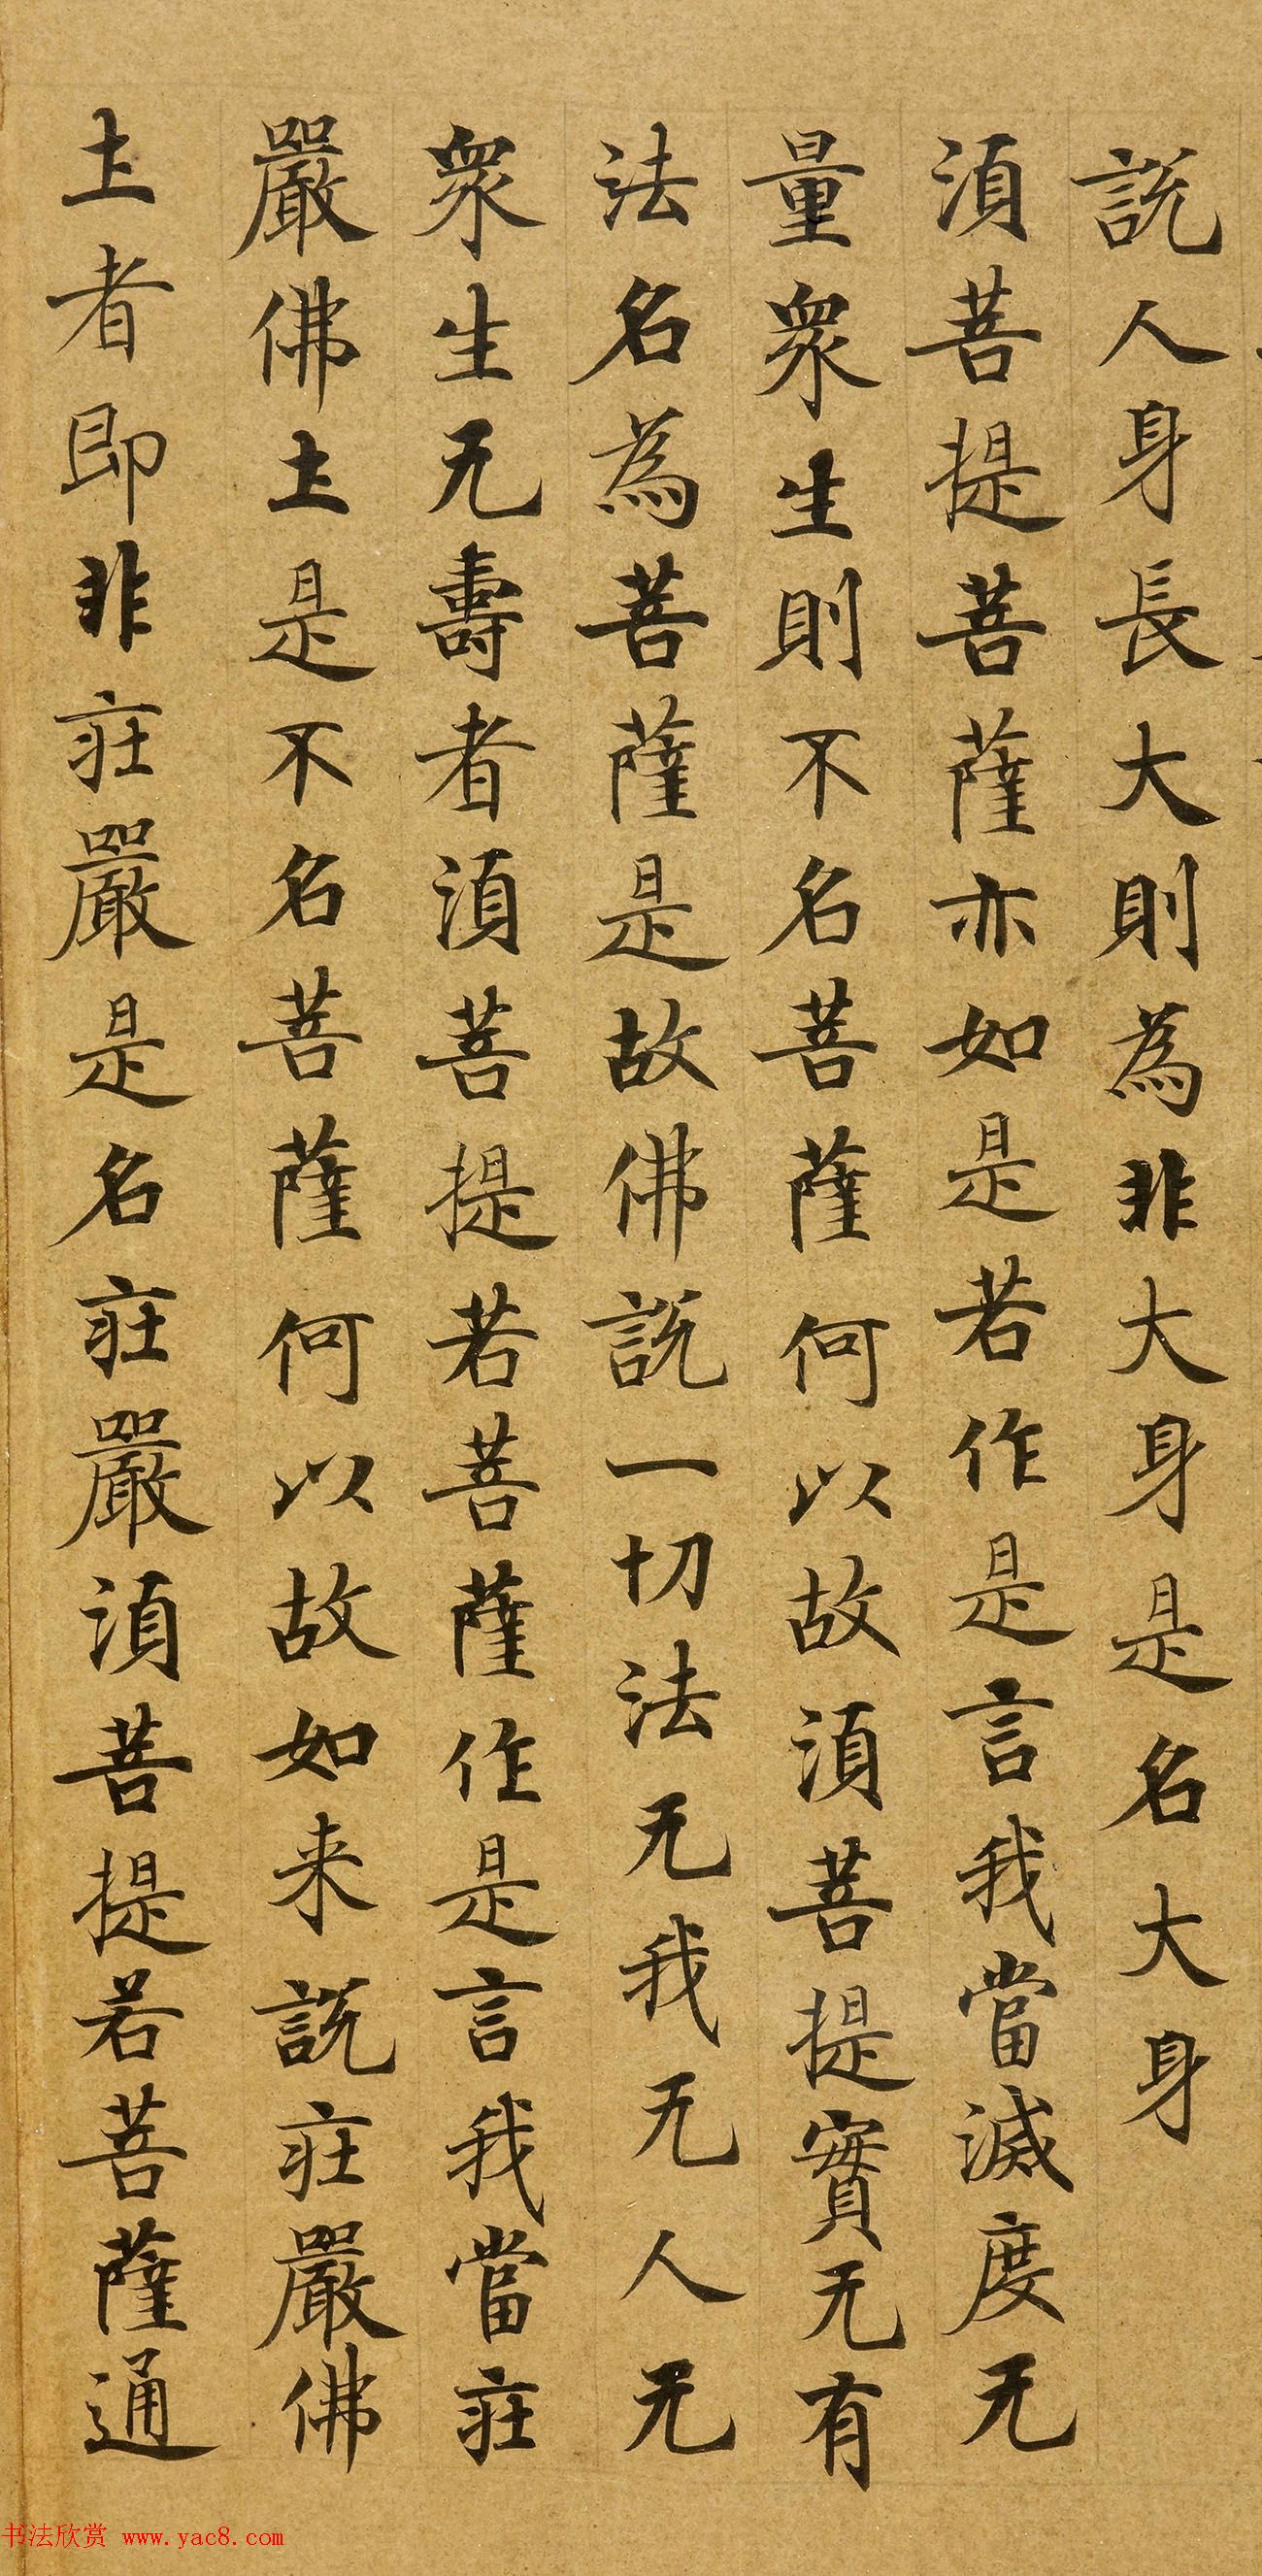 說人身長大則為非大身是名大身
須菩提菩薩亦如是若作是言我當滅度无
量眾生則不名菩薩何以故須菩提實无有
法名為菩薩是故佛說一切法无我无人无
眾生无壽者須菩提若菩薩作是言我當莊
嚴佛土是不名菩薩何以故如来說莊嚴佛
土者即非莊嚴是名莊嚴須菩提若菩薩通
书法欣赏 www.yac8.com